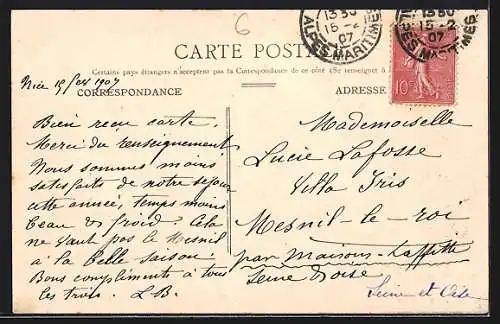 6
1330
15-2
07
ALPES MARITIMES
1330
15-2
07
ALPES MARITIMES
10
CARTE POSTALE
Certains pays étrangers n'acceptent pas la Correspondance de ce côté (Se renseigner à
CORRESPONDANCE
ADRESSE
Nice 15 fév 1907
Bien reçu carte.
Merci du renseignement
Nous sommes moins
satisfaits de notre séjour
cette année, temps moins
beau & froid. Cela
ne vaut pas le Mesnil
à la belle saison.
Bons compliments à tous
les trois. L.B.
Mademoiselle
Lucie Lafosse
Villa Iris
Mesnil-le-roi
par Maisons-Laffitte
Seine & Oise
Seine et Oise